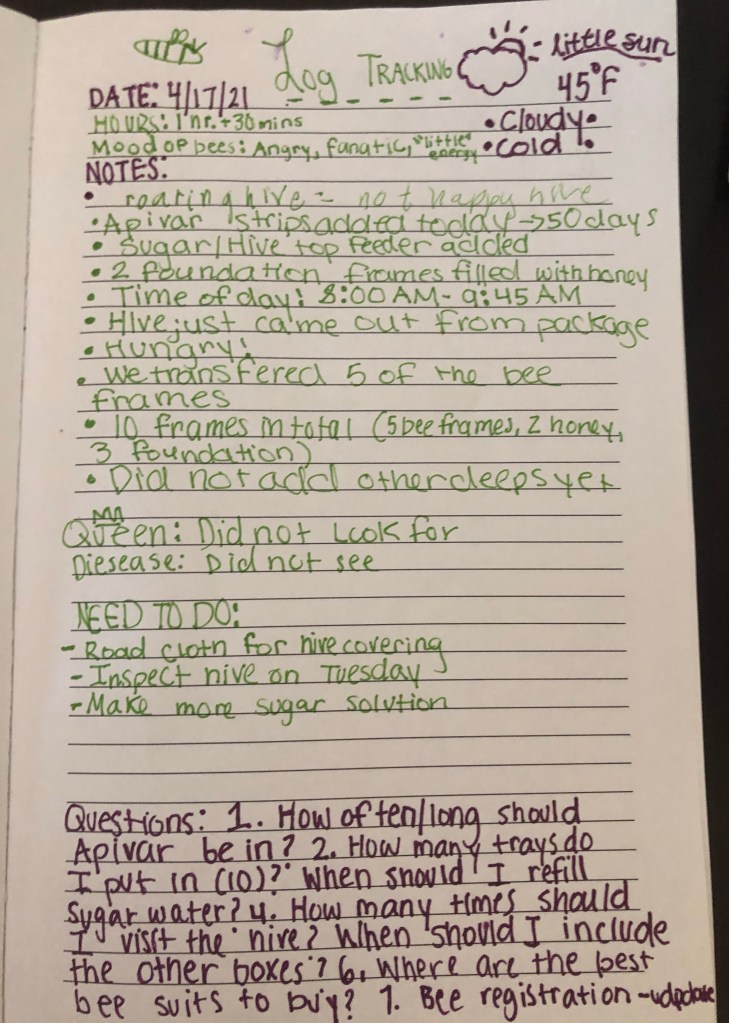 Log TRACKING
little sun
45°F
DATE: 4/17/21
HOURS: 1 hr. + 30 mins
• Cloudy •
Mood of bees: Angry, fanatic, "little" energy
• Cold
NOTES:
• roaring hive = not happy hive
• Apivar strips added today → 50 days
• Sugar/Hive top feeder added
• 2 foundation frames filled with honey
• Time of day: 8:00 AM - 9:45 AM
• Hive just came out from package
• Hungry!
• We transfered 5 of the bee
frames
• 10 frames in total (5 bee frames, 2 honey,
3 foundation)
• Did not add other deeps yet
Queen: Did not Look for
Diesease: Did not see
NEED TO DO:
- Road cloth for hive covering
- Inspect hive on Tuesday
- Make more sugar solution
Questions: 1. How often/long should
Apivar be in? 2. How many trays do
I put in (10)? When should I refill
sugar water? 4. How many times should
I visit the hive? When should I include
the other boxes? 6. Where are the best
bee suits to buy? 7. Bee registration - udpdate